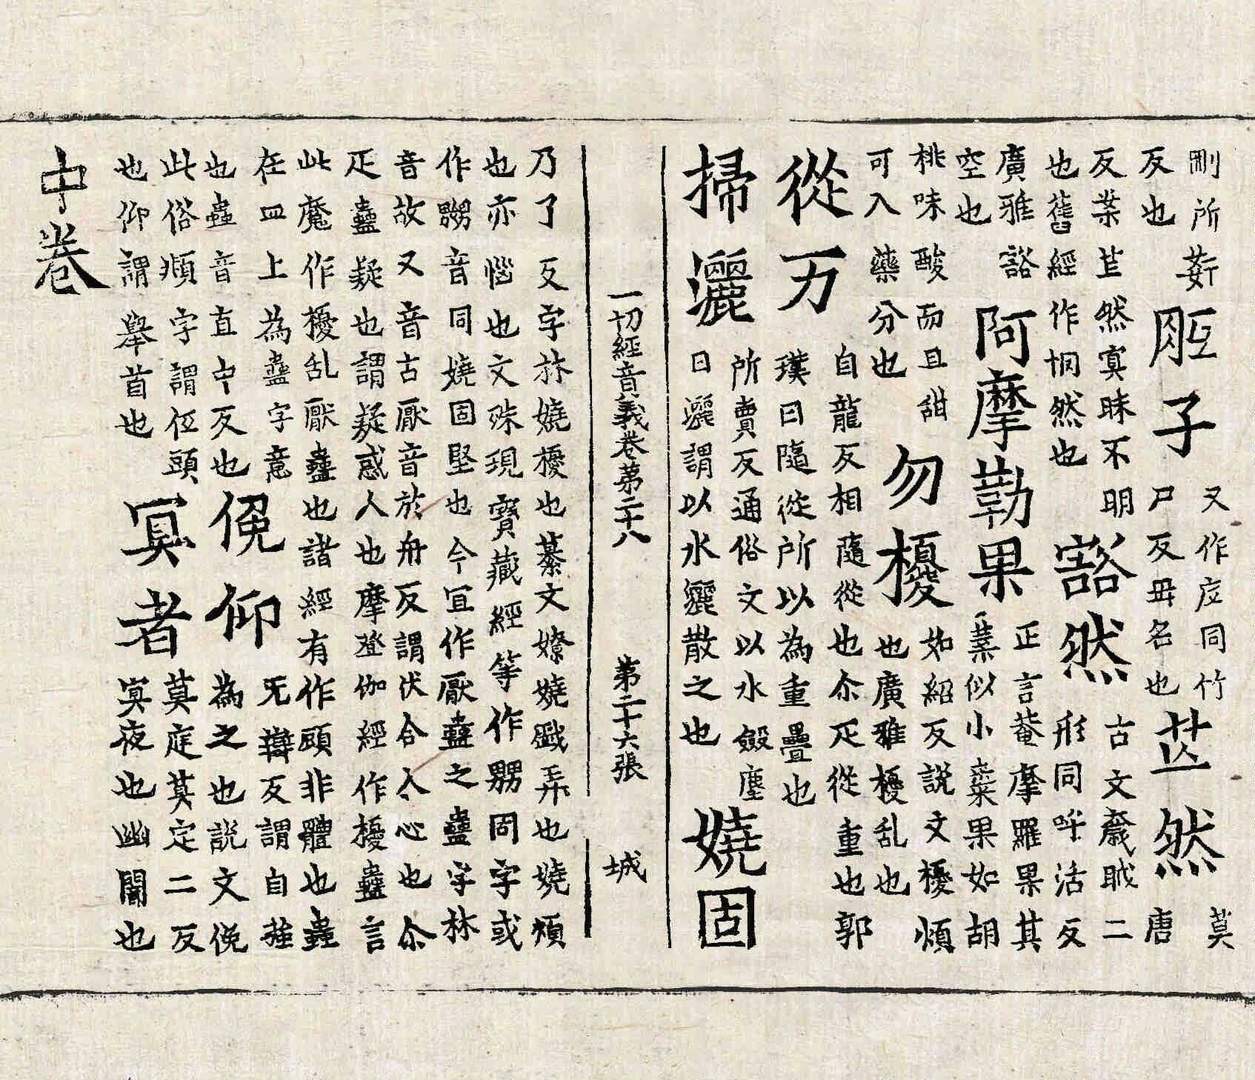 刪所蔪
反也
子
又作同竹
尸反毋名也
茫然
莫
唐
反葉茫然冥昧不明
也舊經作惘然也
豁然
古文奯二
形同呼活反
廣雅豁
空也
阿摩勒果
正言菴摩羅果其
葉似小棗果如胡
桃味酸而且甜
可入藥分也
勿擾
如紹反説文擾煩
也廣雅擾乱也
從万
自龍反相隨從也尒疋從重也郭
璞曰隨從所以為重疊也
掃灑
所賣反通俗文以水㪇塵
曰灑謂以水灑散之也
嬈固
一切經音義卷第二十八 第二十六張 城
乃了反字林嬈擾也纂文嫽嬈戲弄也嬈煩
也亦惱也文殊現寶藏經等作嬲固字或
作嬲音同嬈固堅也今冝作厭蠱之蠱字林
音故又音古厭音於冉反謂伏合人心也尒
疋蠱疑也謂疑惑人也摩登伽經作擾蠱言
此魔作擾乱厭蠱也諸經有作頋非體也蠱
在皿上為蠱字意
也蟲音直中反也
俛仰
无辯反謂自強
為之也説文俛
此俗頫字謂伭頭
也仰謂舉首也
冥者
莫庭莫定二反
冥夜也幽闇也
中卷